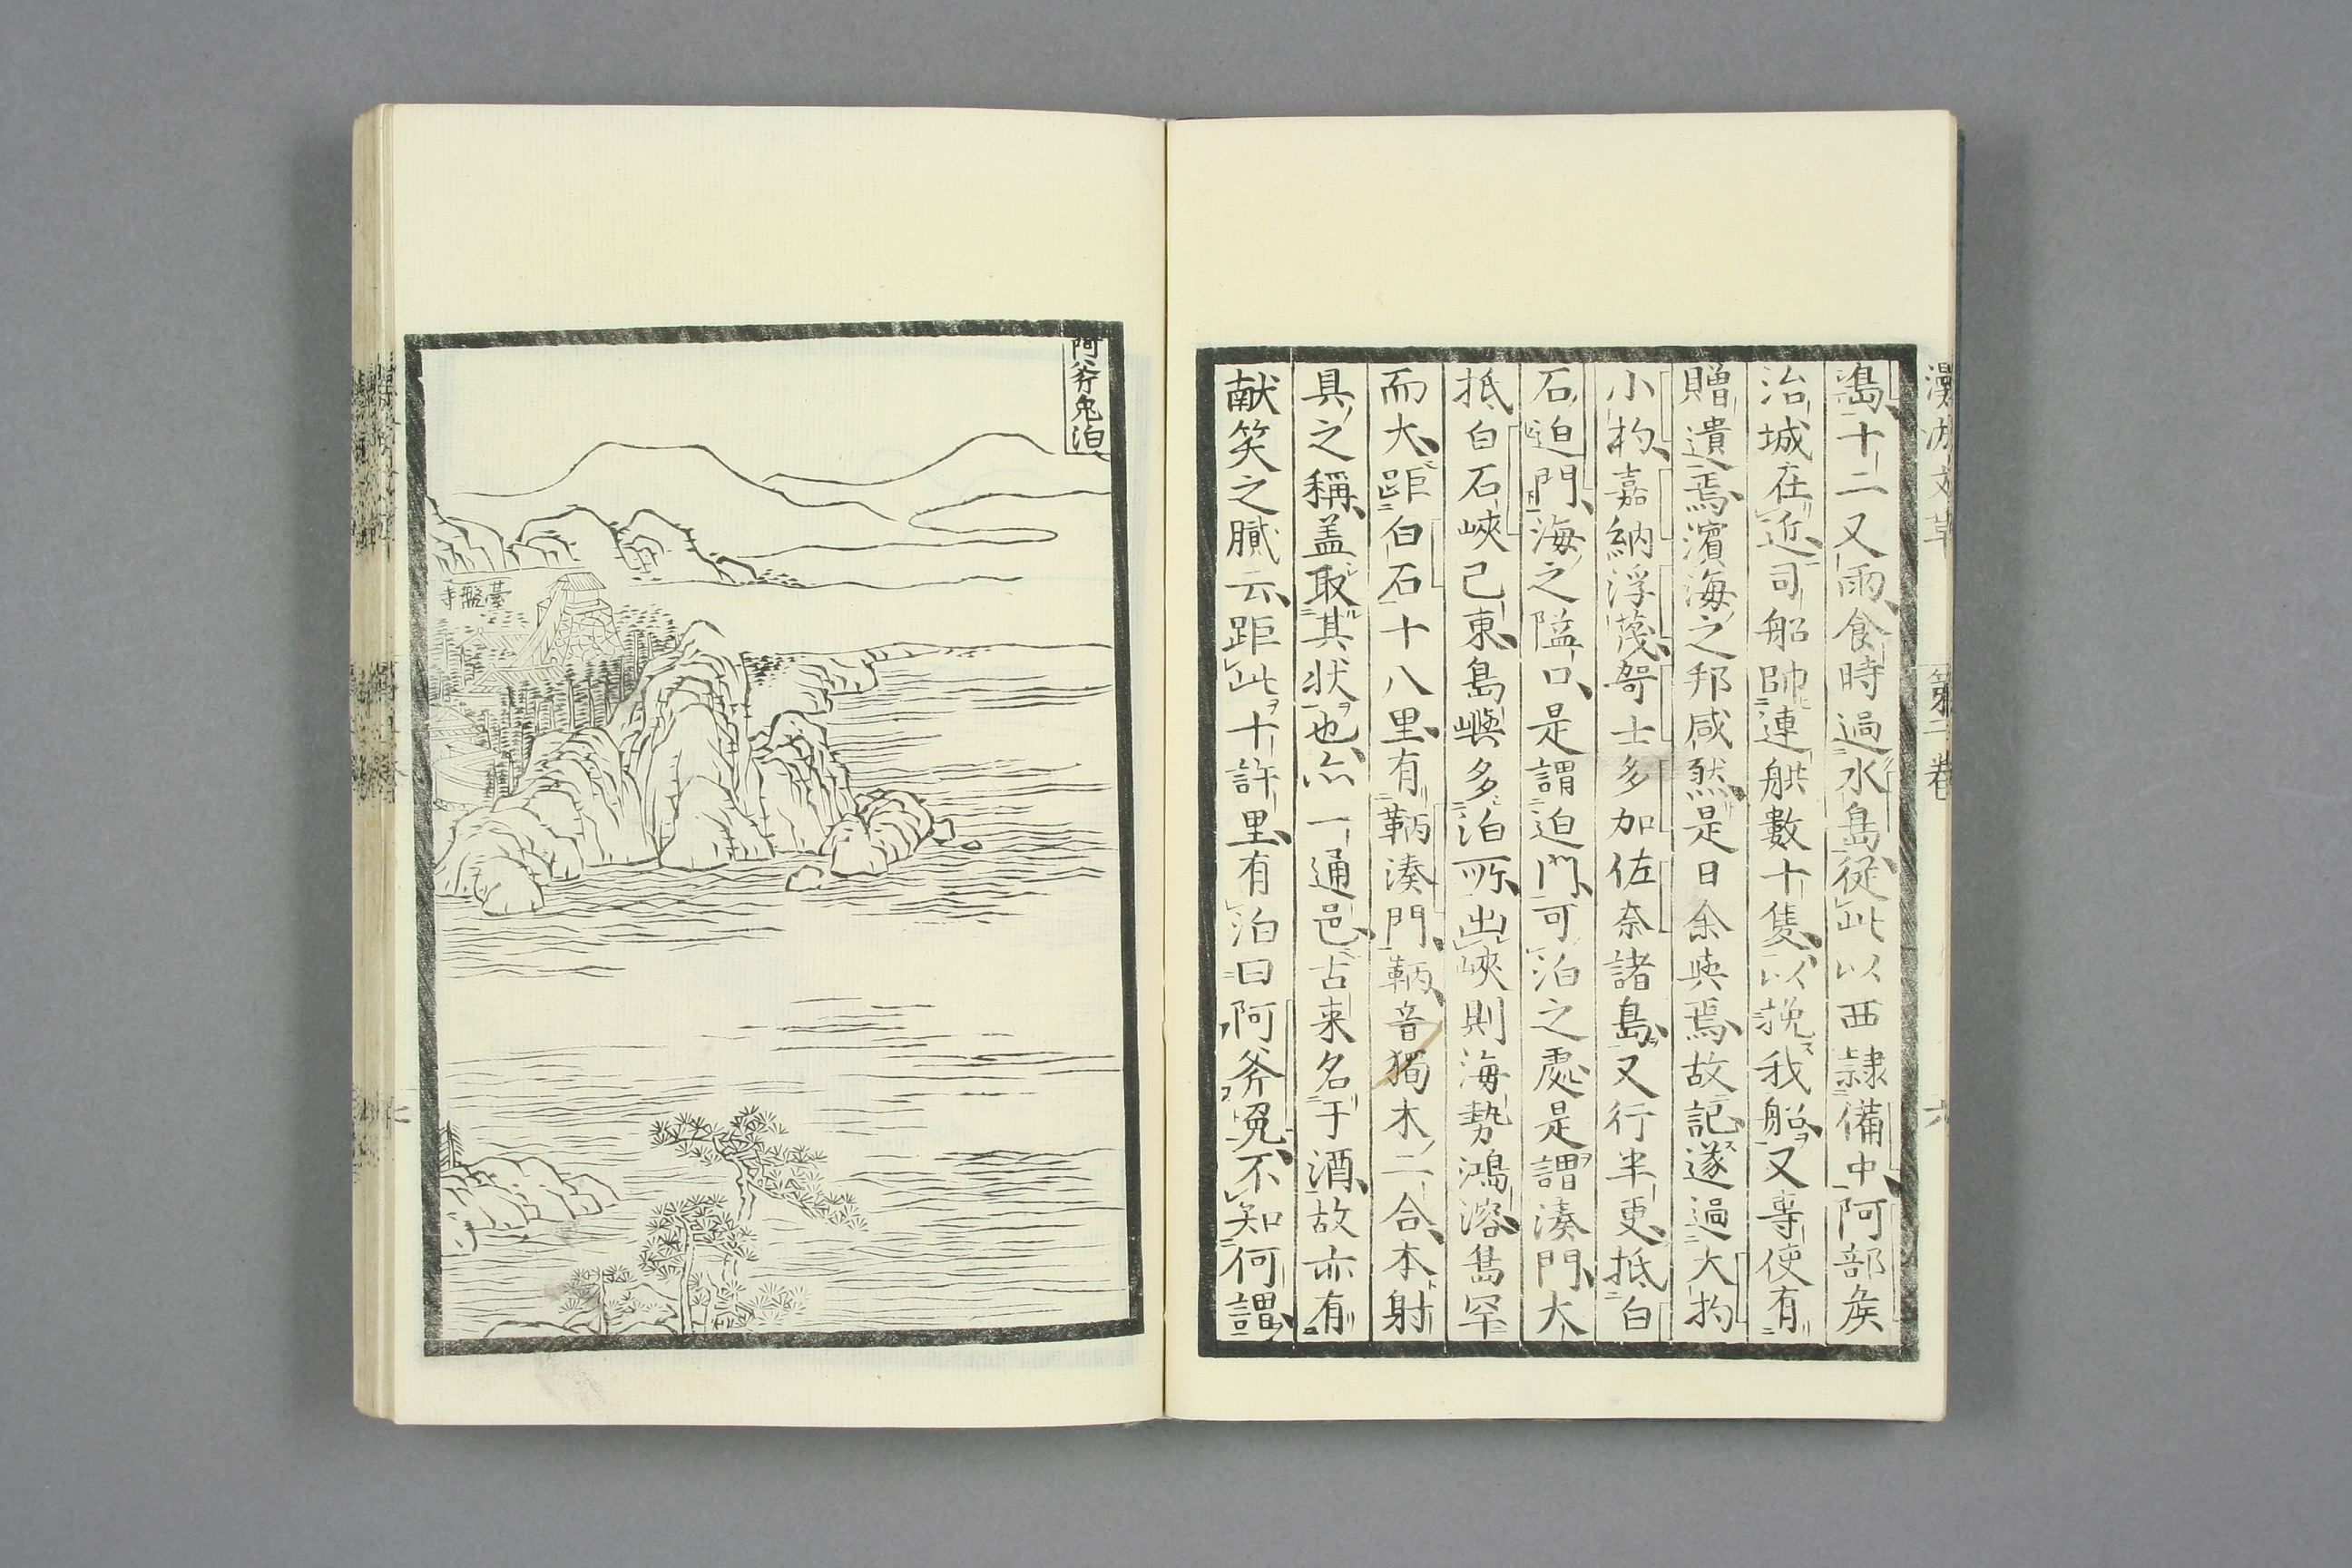 島十二又雨食時過水島從此以西隷備中阿部矦
治城在近司船帥連舼數十隻以挽我船又專使有
贈遺焉濱海之邦咸然是日余與焉故記遂過大杓
小杓嘉納浮茂哿士多加佐奈諸島又行半更抵白
石迫門海之隘口是謂迫門可泊之處是謂湊門大
抵白石峽已東島嶼多泊所出峽則海勢鴻溶島罕
而大距白石十八里有鞆湊門鞆音獨木二合本射
具之稱盖取其状也亦一通邑古来名于酒故亦有
献笑之膩云距此十許里有泊曰阿斧兎不知何謂
阿斧兎泊
臺盤寺
第二卷
六